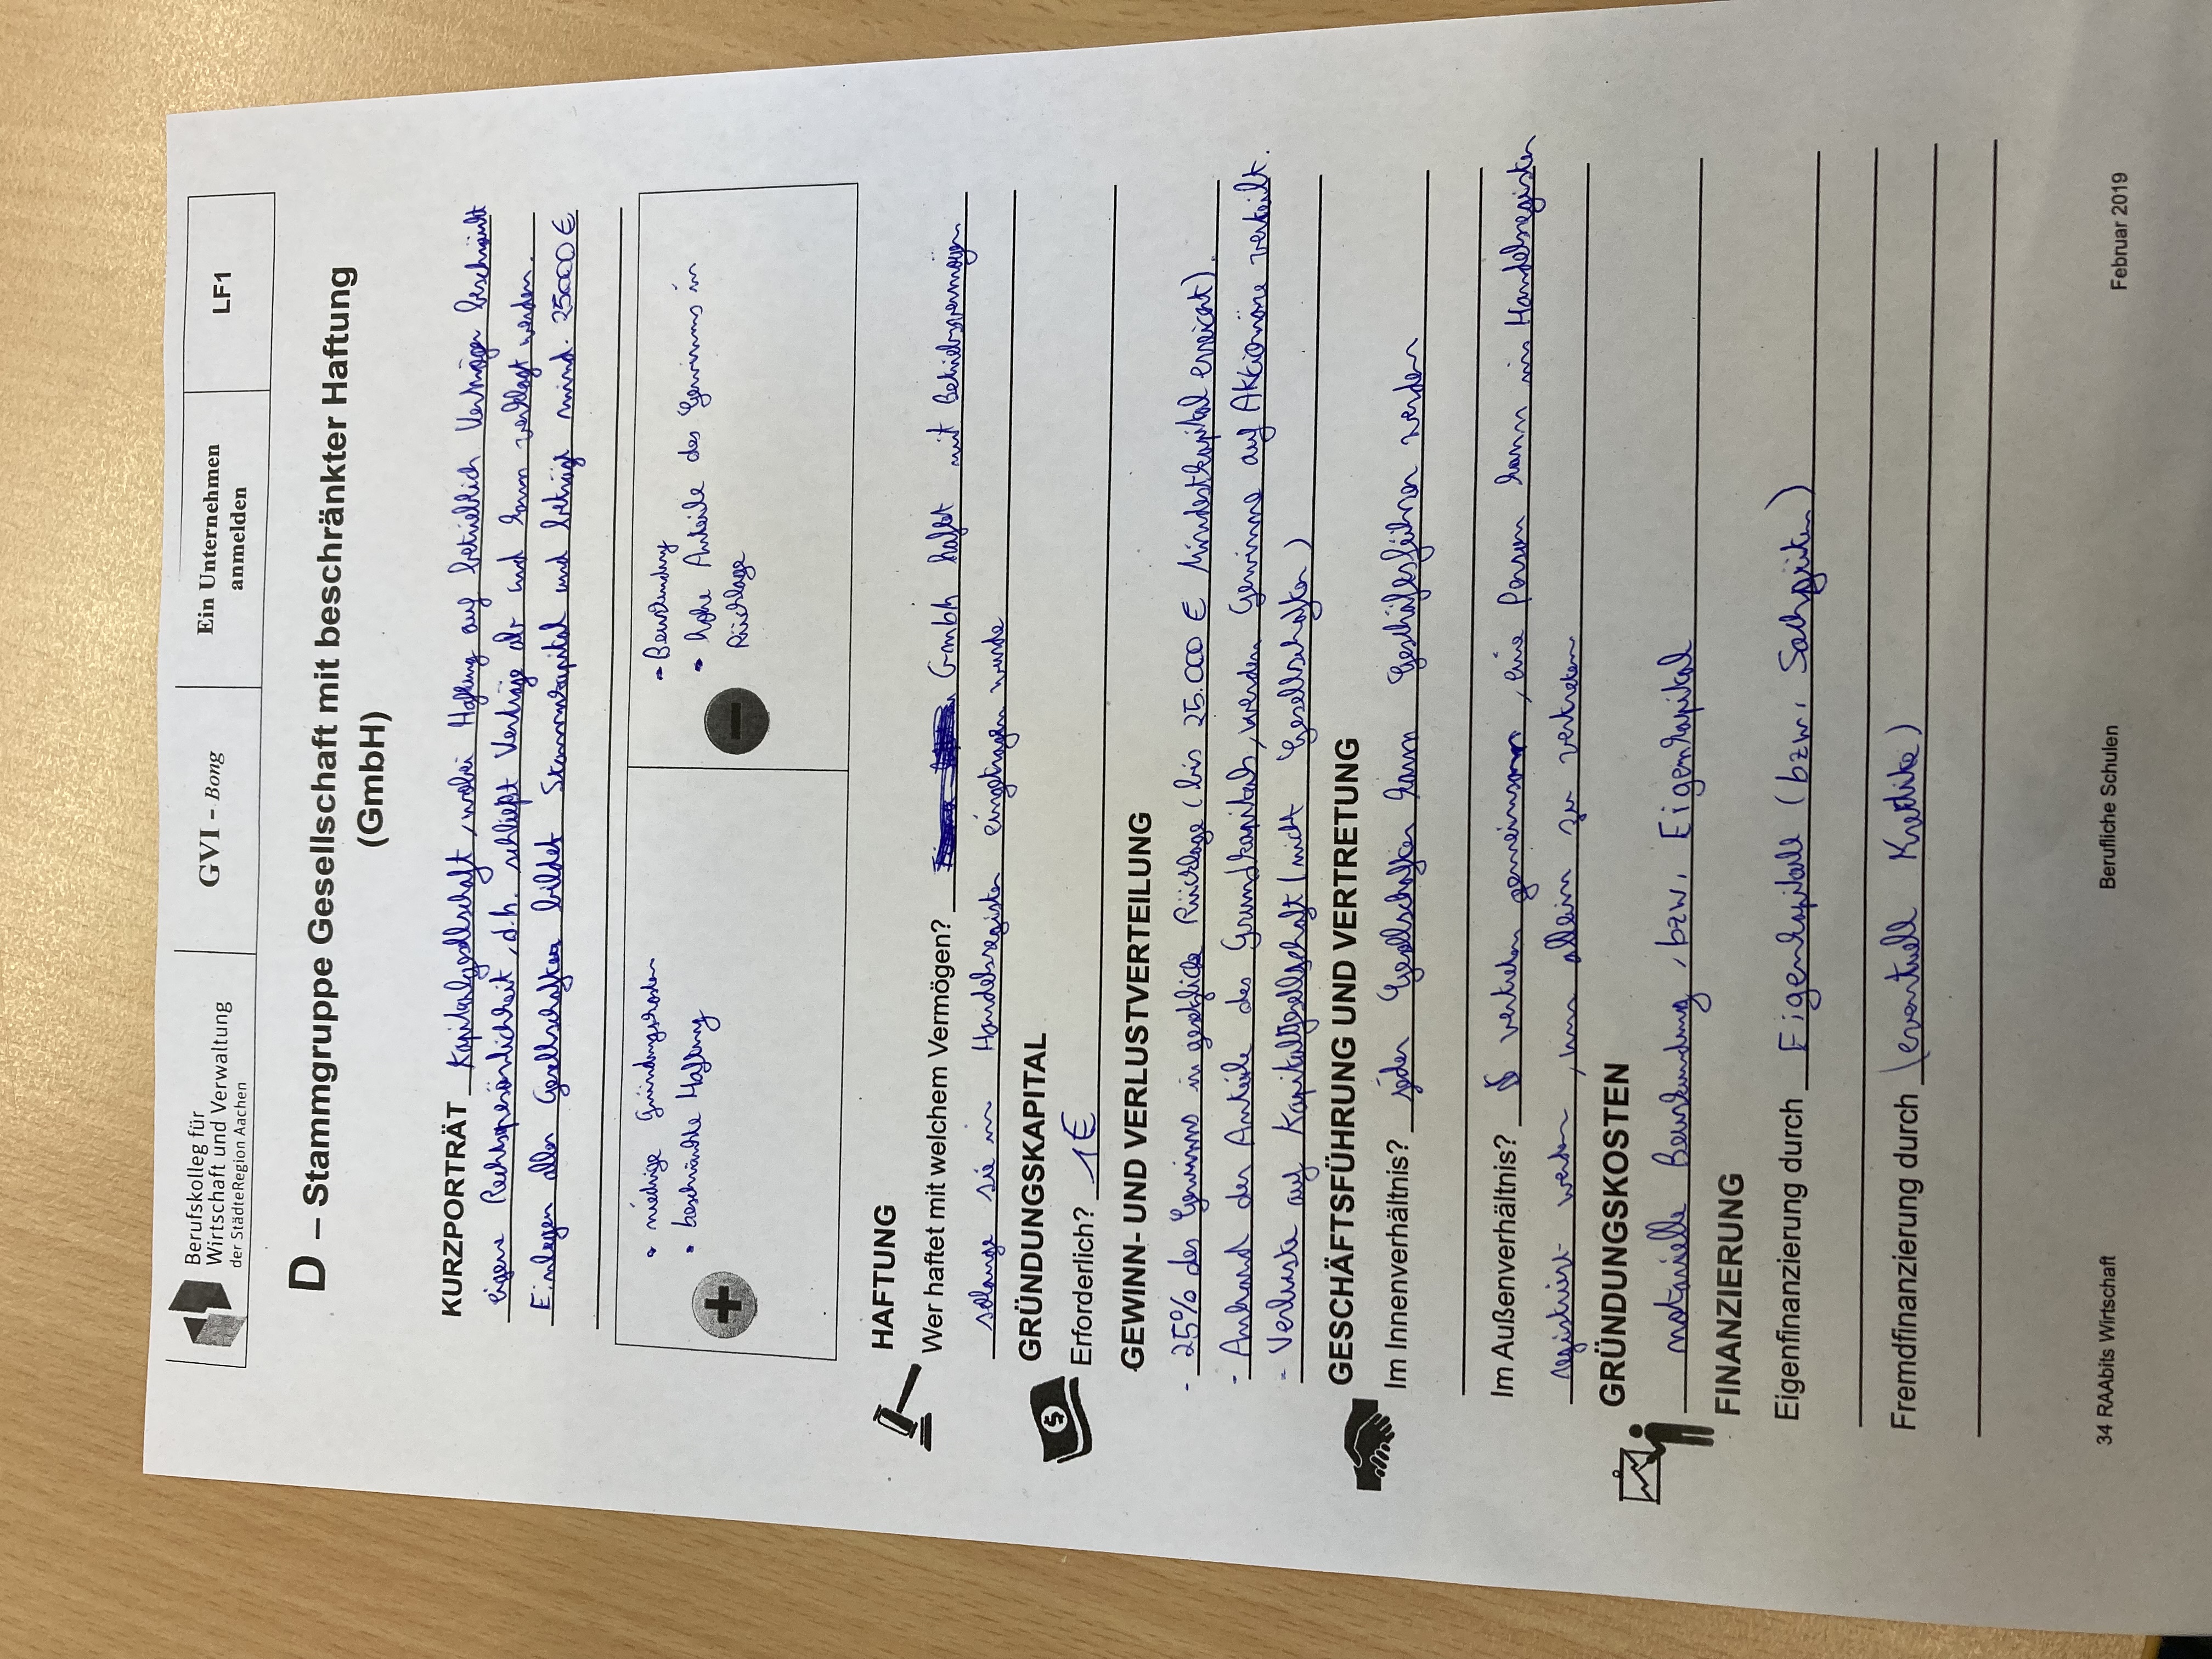 Berufskolleg für
Wirtschaft und Verwaltung
der StädteRegion Aachen
GVI - Bong
Ein Unternehmen
anmelden
LF1
D – Stammgruppe Gesellschaft mit beschränkter Haftung
(GmbH)
KURZPORTRÄT Kapitalgesellschaft, wobei Haftung auf betrieblich Vermögen beschränkt
eigene Rechtspersönlichkeit, d.h. schließt Verträge ab und kann verklagt werden.
Einlagen aller Gesellschafter bildet Stammkapital und beträgt mind. 25000 €
• niedrige Gründungskosten
• beschränkte Haftung
+
- Beurkundung
• hohe Anteile des Gewinns in
Rücklage
HAFTUNG
Wer haftet mit welchem Vermögen? Gmbh haftet mit Betriebsvermögen
solange sie in Handelsregister eingetragen wurde
GRÜNDUNGSKAPITAL
Erforderlich? 1€
GEWINN- UND VERLUSTVERTEILUNG
- 25% des Gewinns in gesetzliche Rücklage (bis 25.000 € Mindestkapital erreicht).
- Anhand der Anteile des Grundkapitals, werden Gewinne auf Aktionäre verteilt.
- Verluste auf Kapitalgesellschaft (nicht Gesellschafter)
GESCHÄFTSFÜHRUNG UND VERTRETUNG
Im Innenverhältnis? jeder Gesellschafter kann Geschäftsführer werden
Im Außenverhältnis? vertreten gemeinsam, eine Person kann ins Handelsregister
registriert werden, um allein zu vertreten
GRÜNDUNGSKOSTEN
notarielle Beurkundung, bzw. Eigenkapital
FINANZIERUNG
Eigenfinanzierung durch Eigenkapitall (bzw. Sachgüter)
Fremdfinanzierung durch (eventuell Kredite)
34 RAAbits Wirtschaft
Berufliche Schulen
Februar 2019